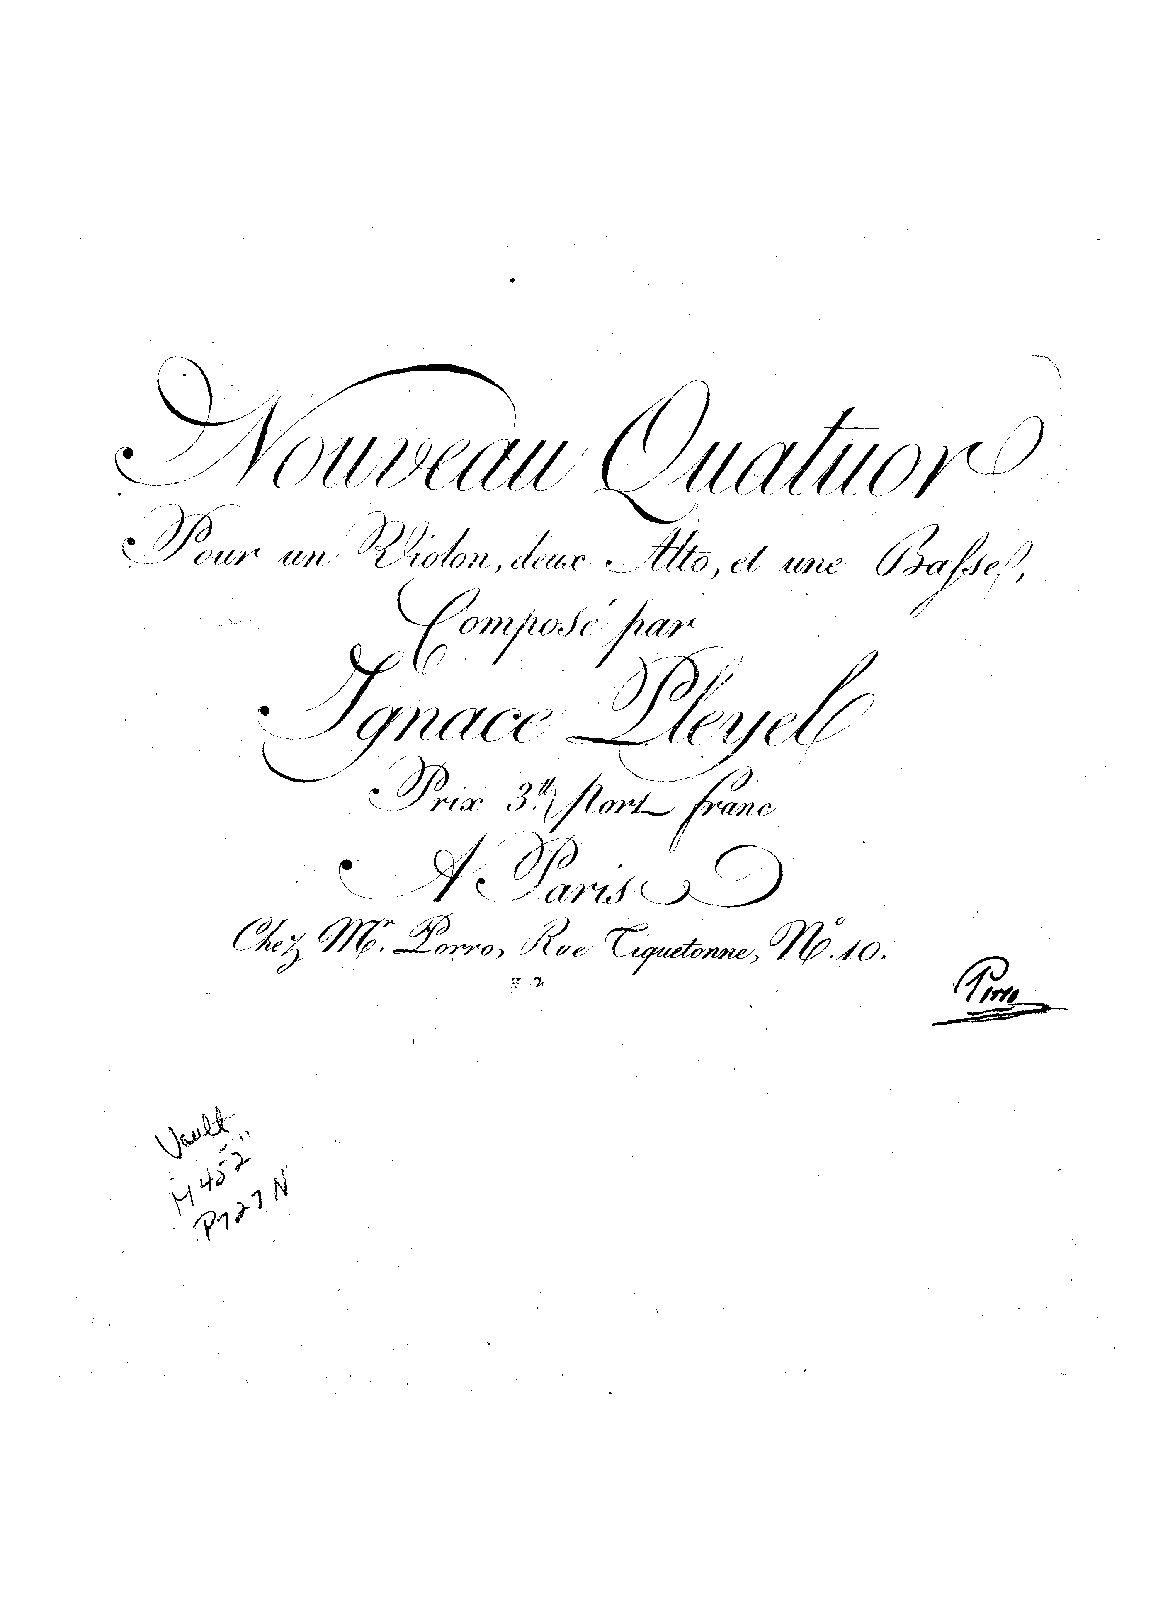 Nouveau Quatuor
Pour un Violon, deux Alto, et une Basse,
Composé par
Ignace Pleyel
Prix 3.ᵗᵗ port franc
A Paris
Chez Mʳ. Porro, Rue Tiquetonne, Nº. 10.
Porro
Vault
M452
P727N